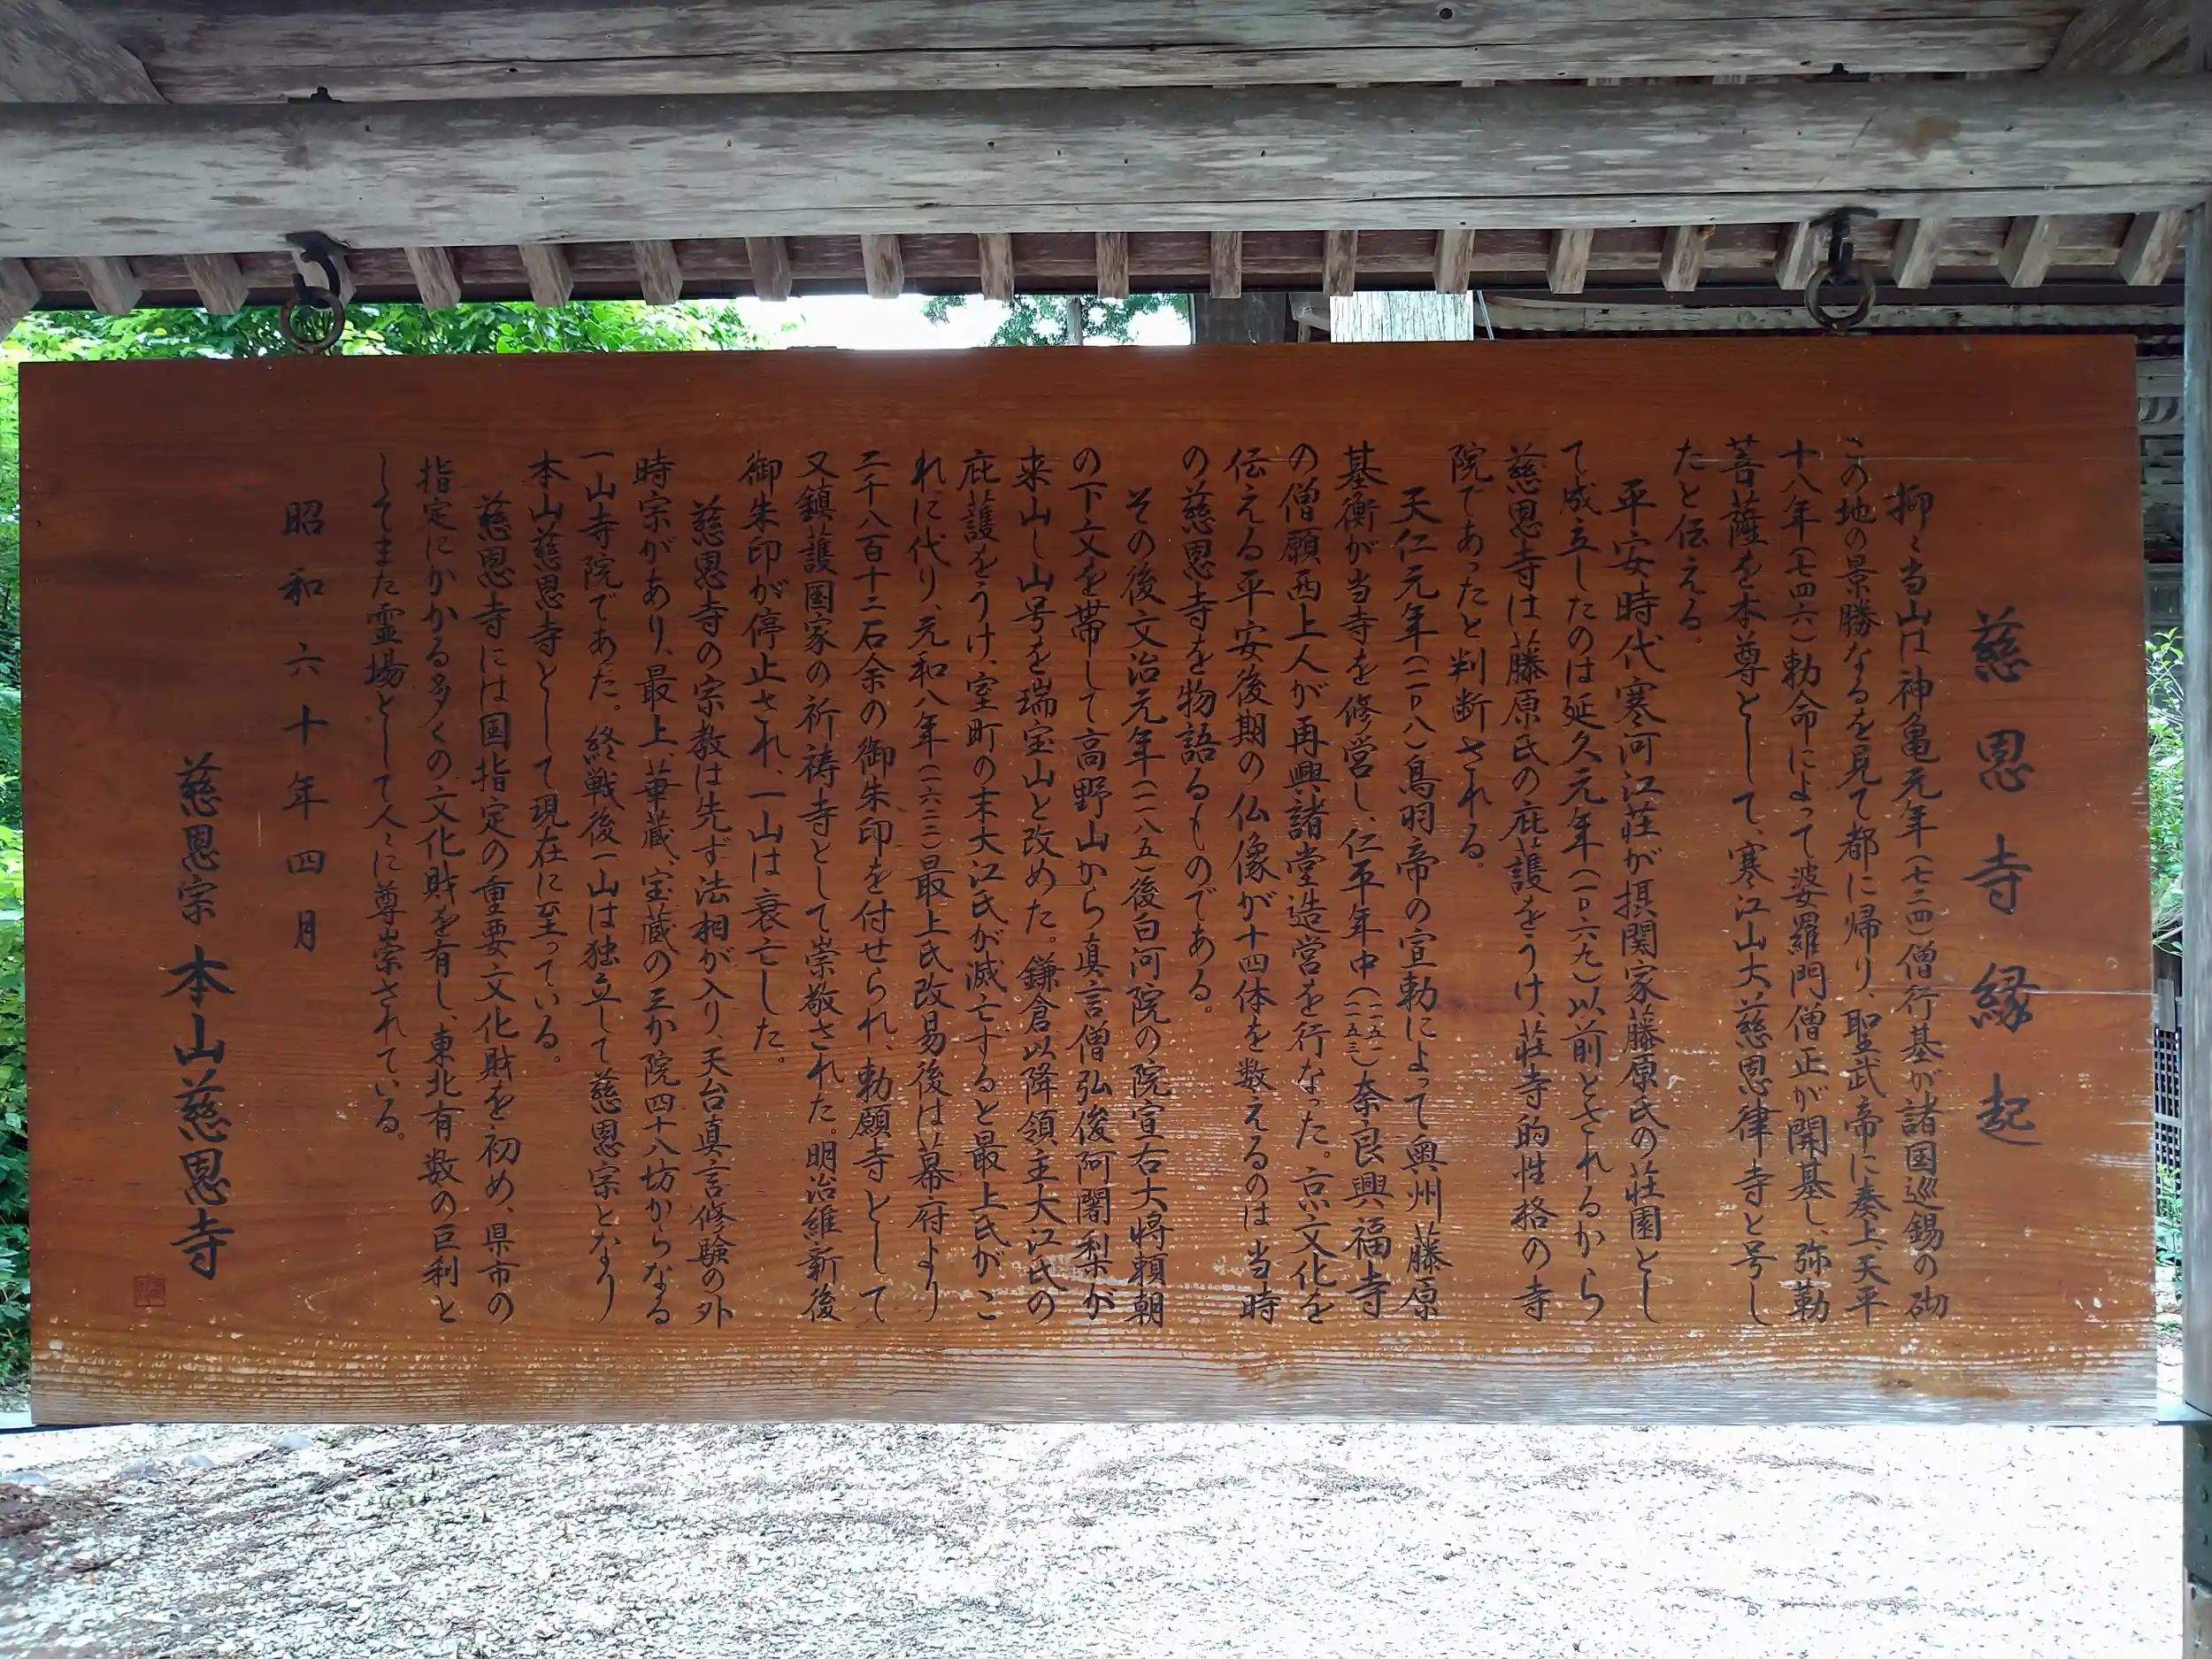 慈恩寺縁起
抑々当山は神亀元年(七二四)僧行基が諸国巡錫の砌
この地の景勝なるを見て都に帰り、聖武帝に奏上、天平
十八年(七四六)勅命によって婆羅門僧正が開基し、弥勒
菩薩を本尊として、寒江山大慈恩律寺と号し
たと伝える。
平安時代寒河江荘が摂関家藤原氏の荘園とし
て成立したのは延久元年(一〇六九)以前とされるから
慈恩寺は藤原氏の庇護をうけ、荘寺的性格の寺
院であったと判断される。
天仁元年(一一〇八)鳥羽帝の宣勅によって奥州藤原
基衡が当寺を修営し、仁平年中(一一五一一一五三)奈良興福寺
の僧願西上人が再興諸堂造営を行なった。京文化を
伝える平安後期の仏像が十四体を数えるのは当時
の慈恩寺を物語るものである。
その後文治元年(一一八五)後白河院の院宣右大将頼朝
の下文を帯して高野山から真言僧弘俊阿闍梨が
来山し山号を瑞宝山と改めた。鎌倉以降領主大江氏の
庇護をうけ、室町の末大江氏が滅亡すると最上氏がこ
れに代り、元和八年(一六二二)最上氏改易後は幕府より
二千八百十二石余の御朱印を付せられ、勅願寺として
又鎮護国家の祈祷寺として崇敬された。明治維新後
御朱印が停止され、一山は衰亡した。
慈恩寺の宗教は先ず法相が入り、天台真言修験の外
時宗があり、最上、華蔵、宝蔵の三か院四十八坊からなる
一山寺院であた。終戦後一山は独立して慈恩宗となり
本山慈恩寺として現在に至っている。
慈恩寺には国指定の重要文化財を初め、県市の
指定にかかる多くの文化財を有し、東北有数の巨刹と
してまた霊場として人々に尊崇されている。
昭和六十年四月
慈恩宗 本山慈恩寺